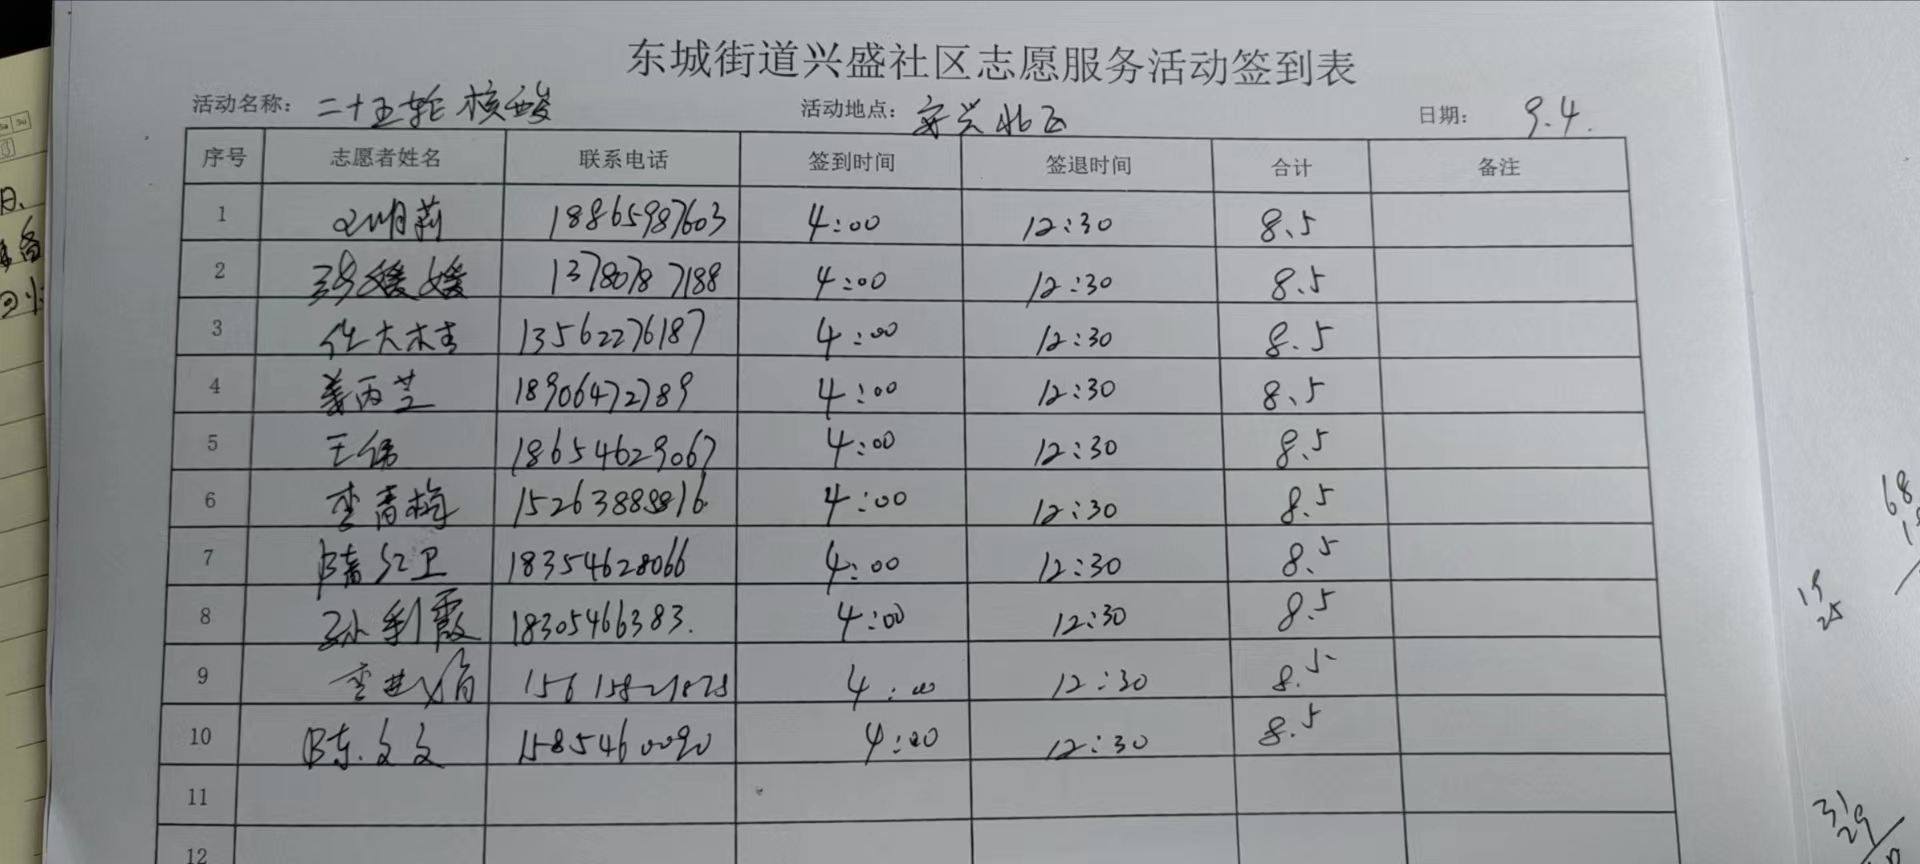 东城街道兴盛社区志愿服务活动签到表
活动名称: 二十五轮核酸 活动地点: 安兴北区 日期: 9.4.
序号 志愿者姓名 联系电话 签到时间 签退时间 合计 备注
1 18865987603 4:00 12:30 8.5
2 媛媛 13780787188 4:00 12:30 8.5
3 任大杰 13562276187 4:00 12:30 8.5
4 姜丙芝 18906472789 4:00 12:30 8.5
5 王伟 18654629067 4:00 12:30 8.5
6 李青梅 15263888816 4:00 12:30 8.5
7 隋红卫 18354628066 4:00 12:30 8.5
8 孙利霞 18305466383. 4:00 12:30 8.5
9 李 4:00 12:30 8.5
10 陈文文 1585460090 4:00 12:30 8.5
11
12
68
19
25
31
29